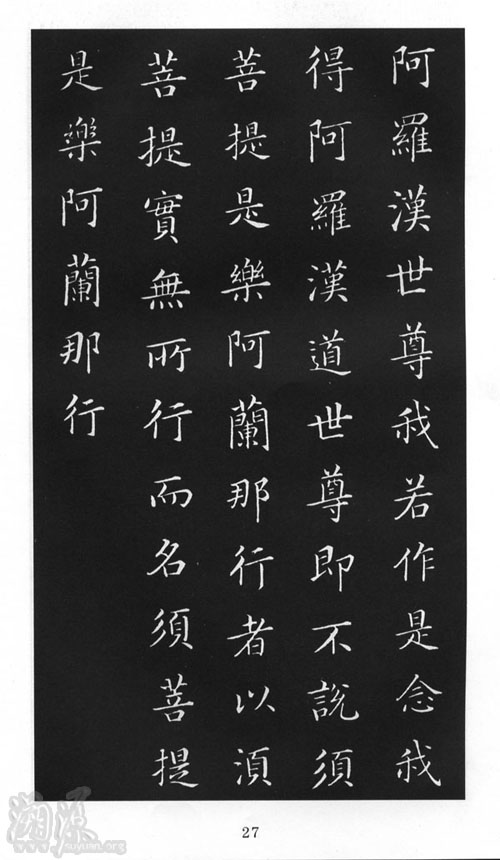 阿羅漢世尊我若作是念我
得阿羅漢道世尊即不說須
菩提是樂阿蘭那行者以須
菩提實無所行而名須菩提
是樂阿蘭那行
27
溯源
suyuan.org